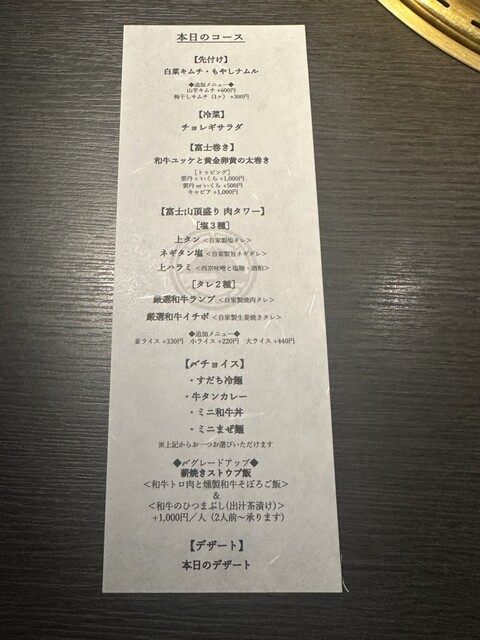 本日のコース
【先付け】
白菜キムチ・もやしナムル
◆追加メニュー◆
山芋キムチ +600円
梅干しキムチ（1ヶ）+300円
【冷菜】
チョレギサラダ
【富士巻き】
和牛ユッケと黄金卵黄の太巻き
［トッピング］
雲丹＋いくら +1,000円
雲丹 or いくら +500円
キャビア +1,000円
【富士山頂盛り 肉タワー】
［塩３種］
上タン ＜自家製塩タレ＞
ネギタン塩 ＜自家製旨ネギダレ＞
上ハラミ ＜西京味噌と塩麹・酒粕＞
［タレ２種］
厳選和牛ランプ ＜自家製焼肉タレ＞
厳選和牛イチボ ＜自家製生姜焼きタレ＞
◆追加メニュー◆
並ライス +330円　小ライス +220円　大ライス +440円
【〆チョイス】
・すだち冷麺
・牛タンカレー
・ミニ和牛丼
・ミニまぜ麺
※上記からお一つお選びいただけます
◆〆グレードアップ◆
薪焼きストウブ飯
＜和牛トロ肉と燻製和牛そぼろご飯＞
＆
＜和牛のひつまぶし(出汁茶漬け)＞
+1,000円／人（2人前〜承ります）
【デザート】
本日のデザート